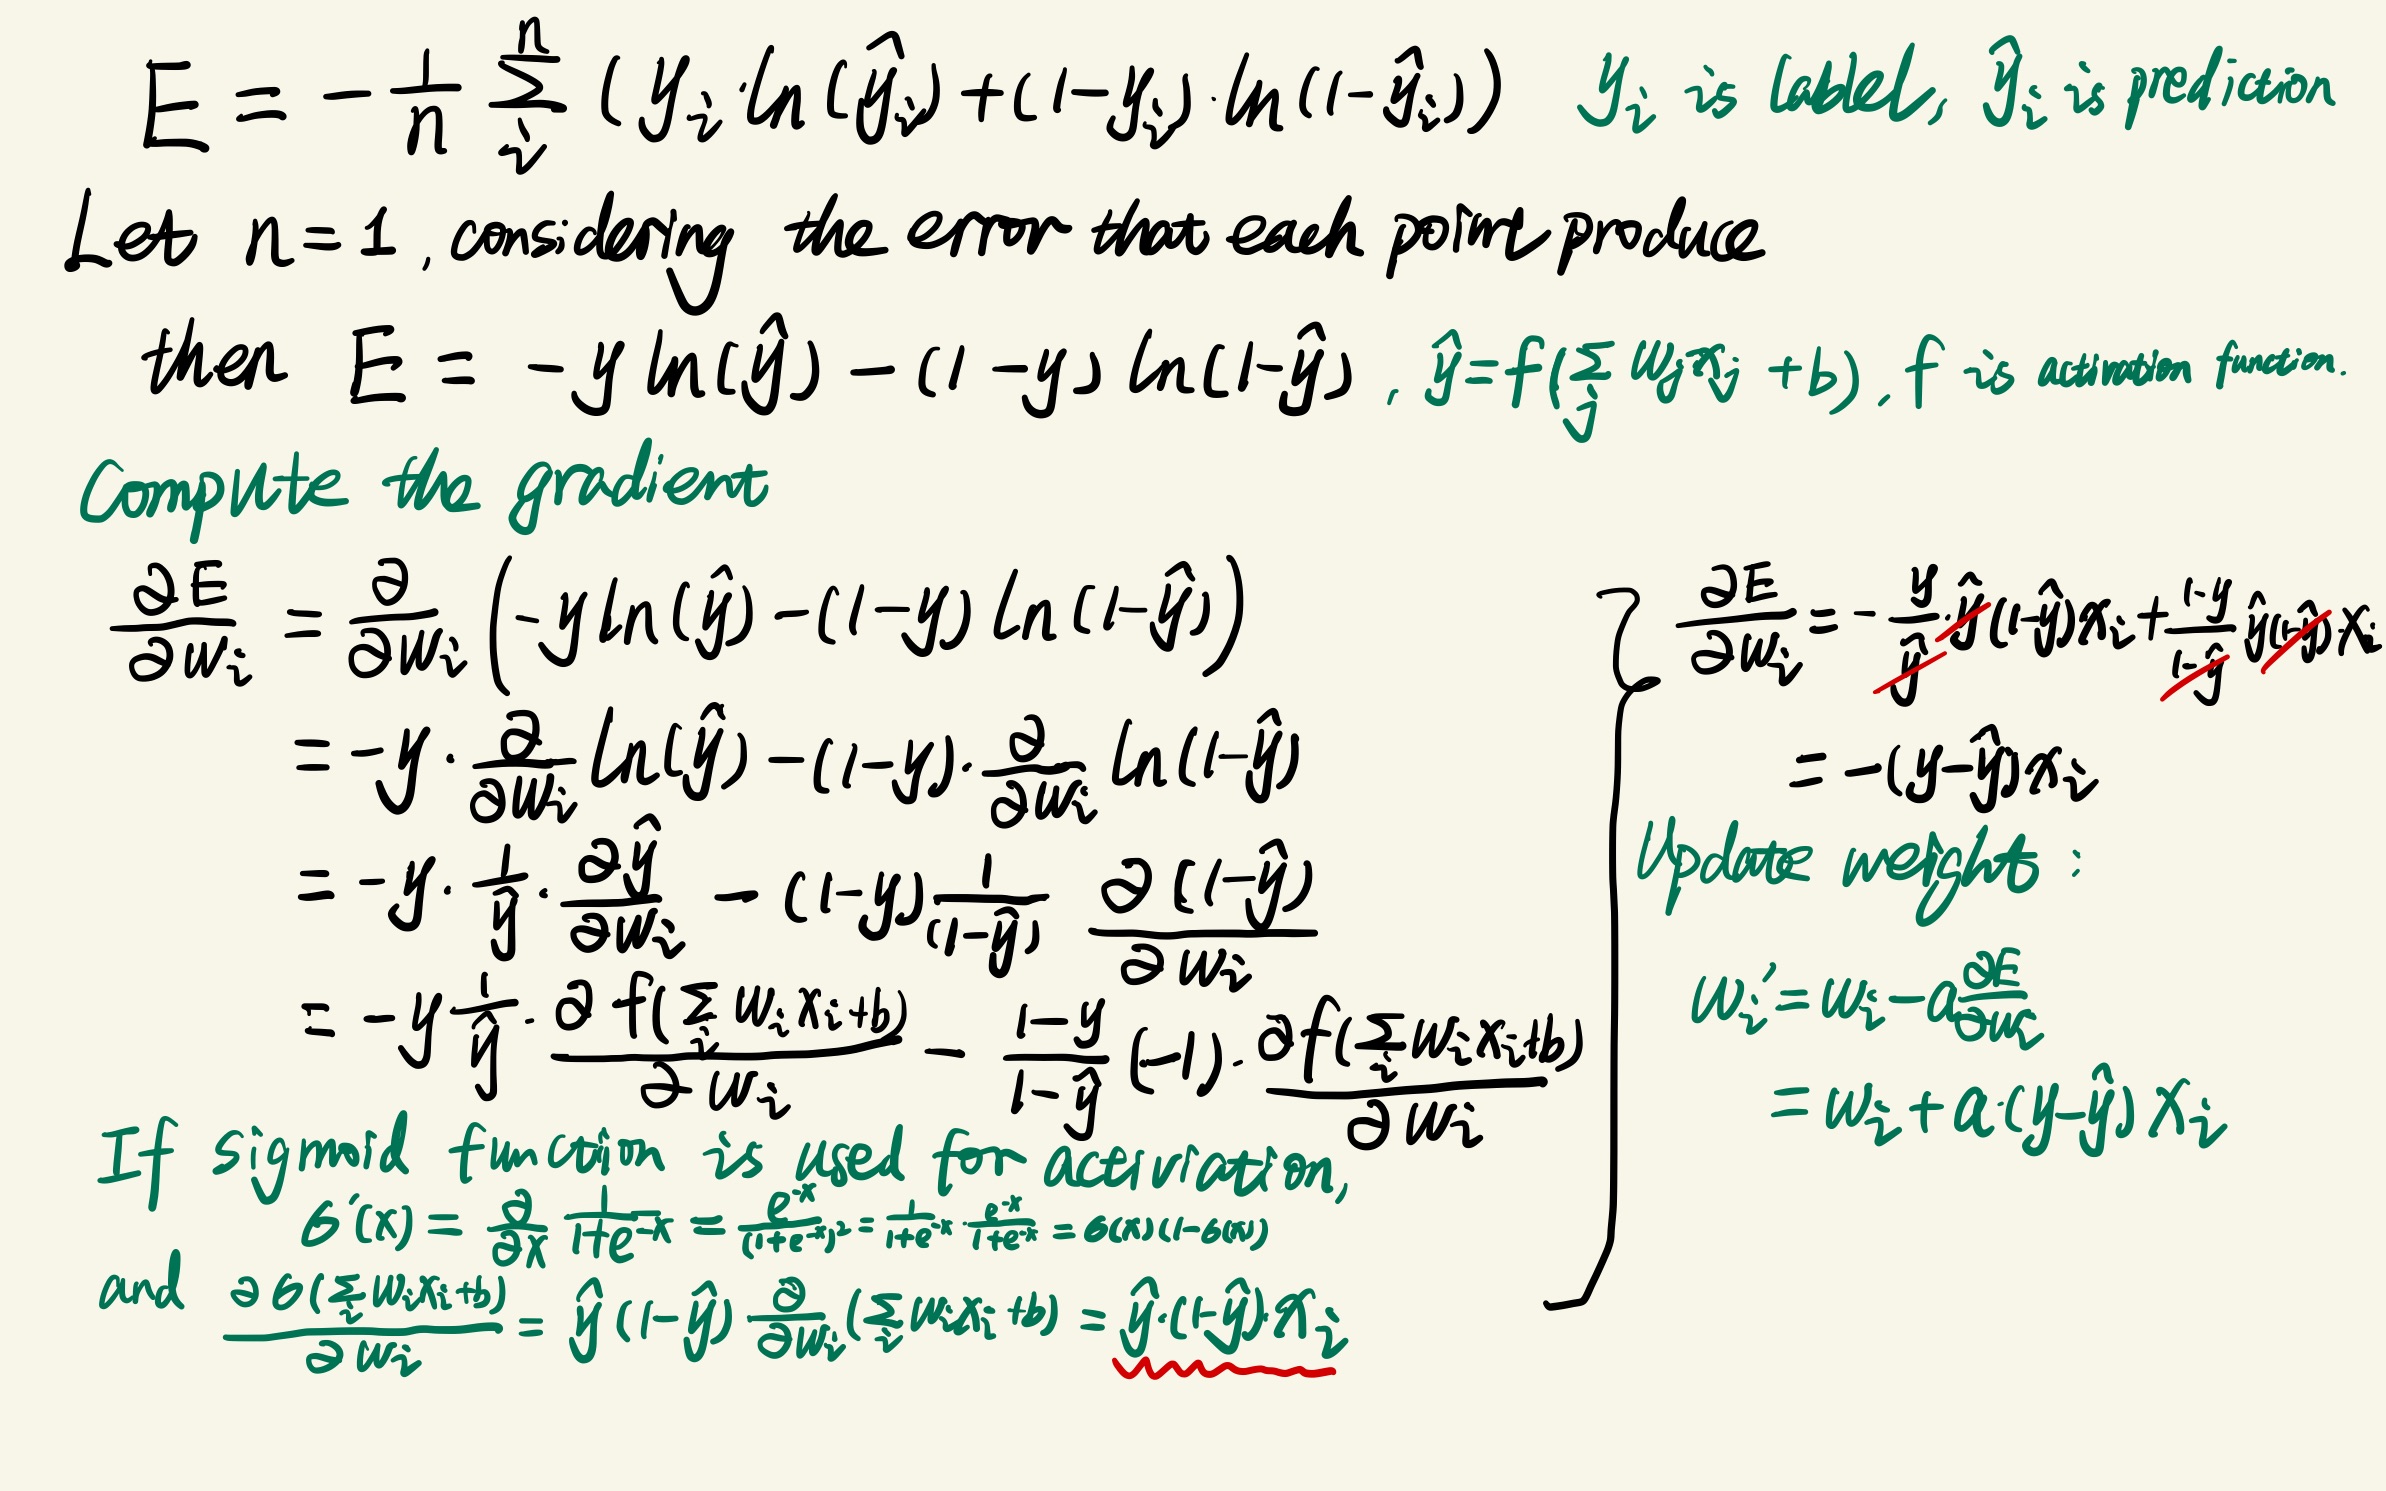 E = -1/n Σ_i^n (y_i · ln(ŷ_i) + (1-y_i) · ln(1-ŷ_i)) y_i is label, ŷ_i is prediction
Let n=1, considering the error that each point produce
then E = -y ln(ŷ) - (1-y) ln(1-ŷ), ŷ=f(Σ_j w_j x_j + b), f is activation function.
Compute the gradient
∂E/∂w_i = ∂/∂w_i (-y ln(ŷ) - (1-y) ln(1-ŷ))
= -y · ∂/∂w_i ln(ŷ) - (1-y) · ∂/∂w_i ln(1-ŷ)
= -y · 1/ŷ · ∂ŷ/∂w_i - (1-y) 1/(1-ŷ) ∂(1-ŷ)/∂w_i
= -y 1/ŷ · ∂f(Σ_i w_i x_i + b)/∂w_i - (1-y)/(1-ŷ) (-1) · ∂f(Σ_i w_i x_i + b)/∂w_i
If sigmoid function is used for activation,
σ'(x) = ∂/∂x 1/(1+e^-x) = e^-x/(1+e^-x)^2 = 1/(1+e^-x) · e^-x/(1+e^-x) = σ(x)(1-σ(x))
and ∂σ(Σ_i w_i x_i + b)/∂w_i = ŷ(1-ŷ) ∂/∂w_i (Σ_i w_i x_i + b) = ŷ·(1-ŷ)·x_i
∂E/∂w_i = -y/ŷ · ŷ(1-ŷ)x_i + (1-y)/(1-ŷ) ŷ(1-ŷ)x_i
= -(y-ŷ)x_i
Update weight :
w_i' = w_i - a ∂E/∂w_i
= w_i + a·(y-ŷ) x_i